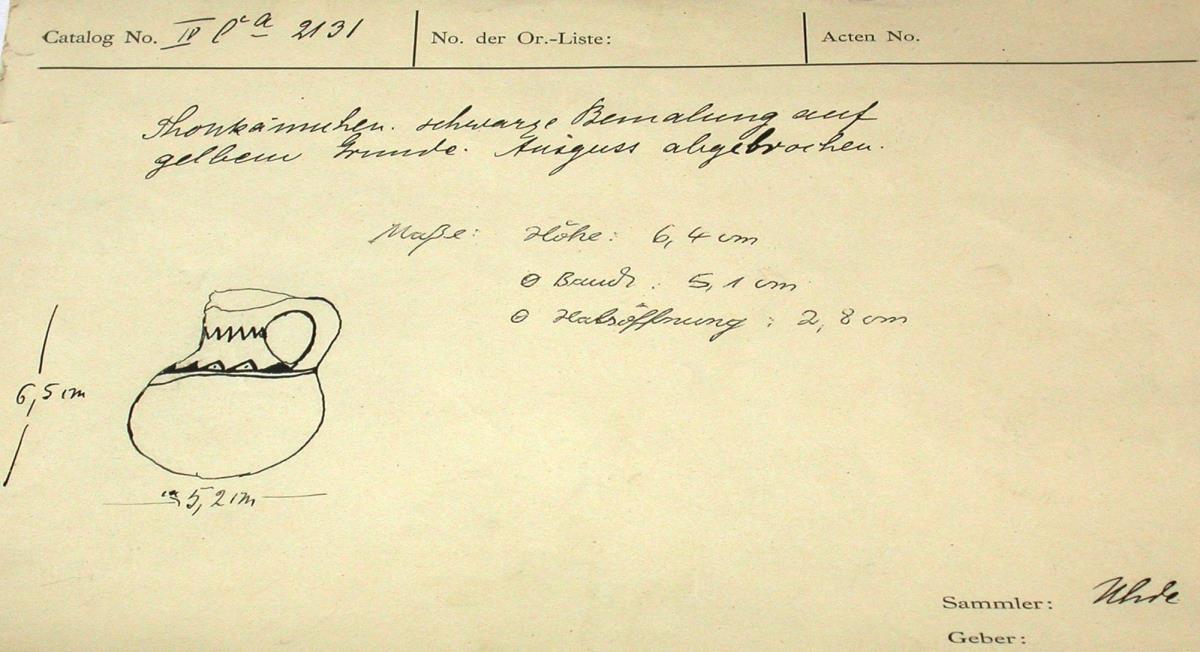 Catalog No. IV Ca 2131 No. der Or.-Liste: Acten No.
Thonkännchen. schwarze Bemalung auf
gelbem Grunde. Ausguss abgebrochen.
Maße: Höhe: 6,4 cm
⌀ Bauch: 5,1 cm
⌀ Halsöffnung: 2,8 cm
6,5 cm
5,2 cm
Sammler: Uhde
Geber: